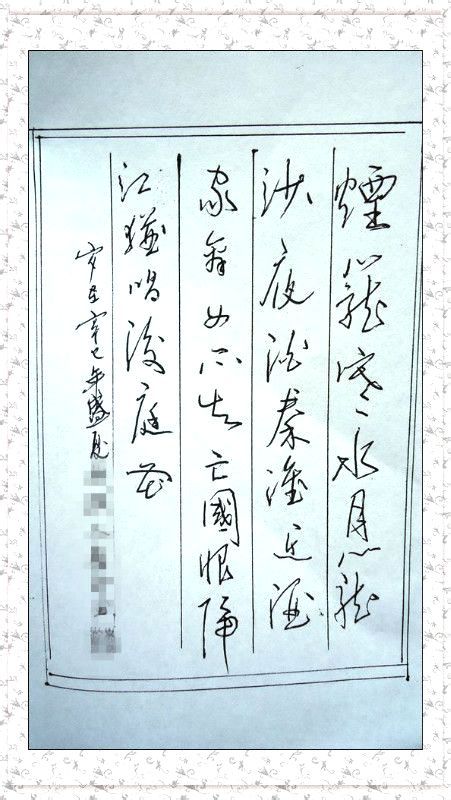 煙籠寒水月籠
沙夜泊秦淮近酒
家商女不知亡國恨隔
江猶唱後庭花
岁年盛夏